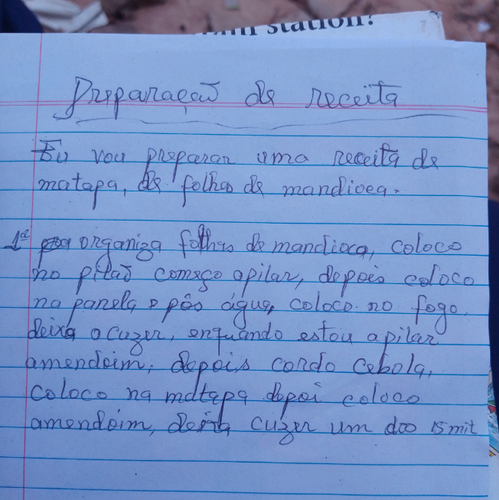 station?
Preparação de receita
Eu vou preparar uma receita de
matapa, de folhas de mandioca.
1º organiza folhas de mandioca, coloco
no pilaõ começo apilar, depois coloco
na panela e pôs água, coloco no fogo,
deixa o cuzer, enquando estou a pilar
amendoim, depois cordo Cebola,
coloco na matapa depoi coloco
amendoim, deixa cuzer um doo 15 mit